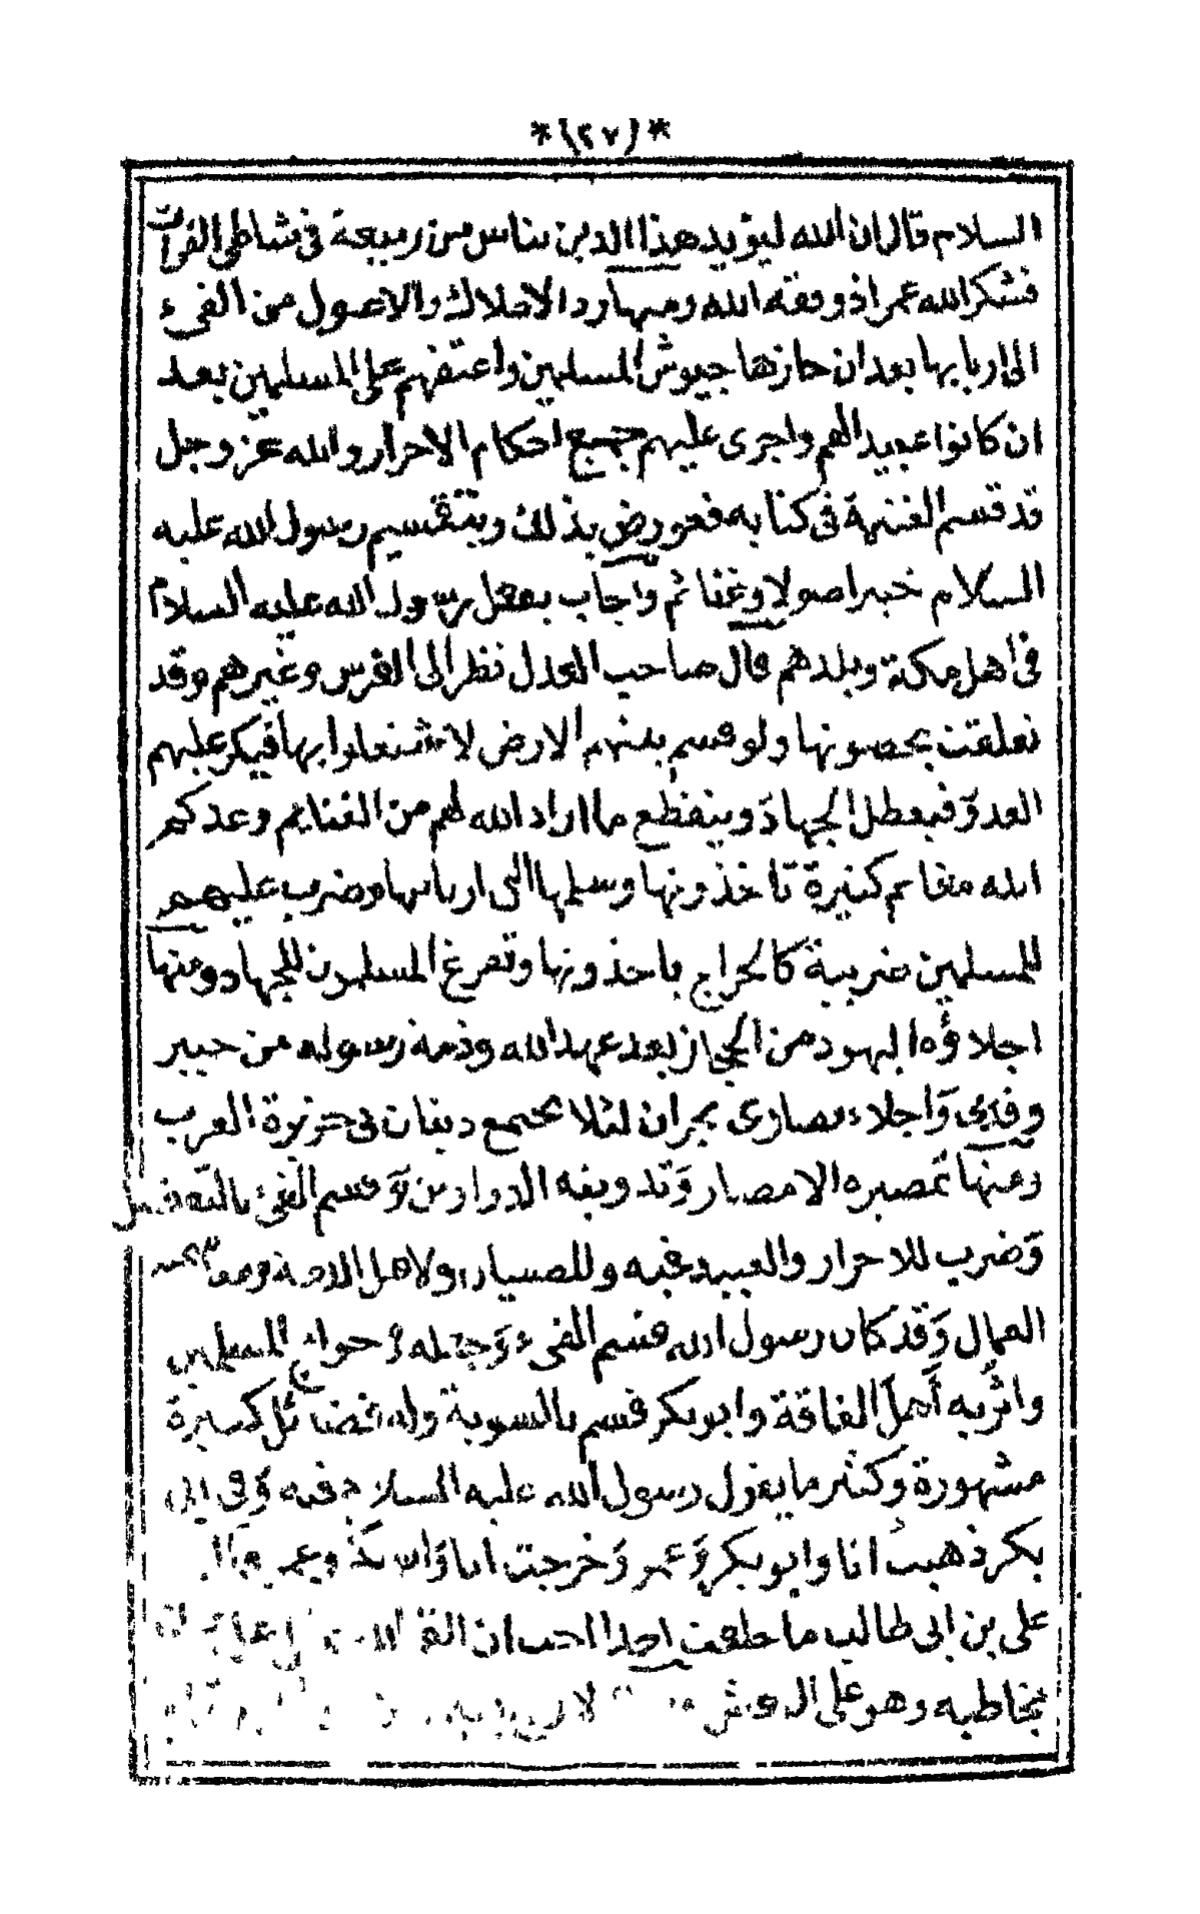 *(٢٧)*
السلام قال ان الله ليؤيد هذا الدين بناس من ربيعة فى شاطئ الفرات
فشكر الله عمر اذ وفقه الله ومنها رد الاملاك والاصول من الفىء
الى اربابها بعد ان حازها جيوش المسلمين واعتقهم على المسلمين بعد
ان كانوا عبيدا لهم واجرى عليهم جميع احكام الاحرار والله عز وجل
قد قسم الغنيمة فى كتابه فعورض بذلك وبتقسيم رسول الله عليه
السلام خيبر اصولا وغنائم واجاب بفعل رسول الله عليه السلام
فى اهل مكة وبلدهم قال صاحب العدل نظر الى الفرس وغيرهم وقد
تعلقت بحصونها ولو قسم بينهم الارض لاشتغلوا بها فيكر عليهم
العدو فيعطل الجهاد وينقطع ما اراد الله لهم من الغنايم وعدكم
الله مغانم كثيرة تاخذونها وسلمها الى اربابها وضرب عليهم
للمسلمين ضريبة كالخراج ياخذونها وتفرغ المسلمون للجهاد ومنها
اجلاؤه اليهود من الحجاز بعد عهد الله وذمة رسوله من خيبر
وفدك واجلاء نصارى نجران لئلا يجتمع دينان فى جزيرة العرب
ومنها تمصيره الامصار وتدوينه الدواوين وقسم الفىء بالتفضيل
وضرب للاحرار والعبيد فيه وللصبيان ولاهل الذمة
العمال وقد كان رسول الله قسم الفىء وجعله فى حوائج المسلمين
واثر به أهل الفاقة وابو بكر قسم بالسوية وله فضائل كثيرة
مشهورة وكثير ما يقول رسول الله عليه السلام فيه وفى ابى
بكر ذهبت انا وابو بكر وعمر وخرجت انا وابو بكر وعمر
على بن ابى طالب ما خلفت احدا احب ان القى الله
يخاطبه وهو على